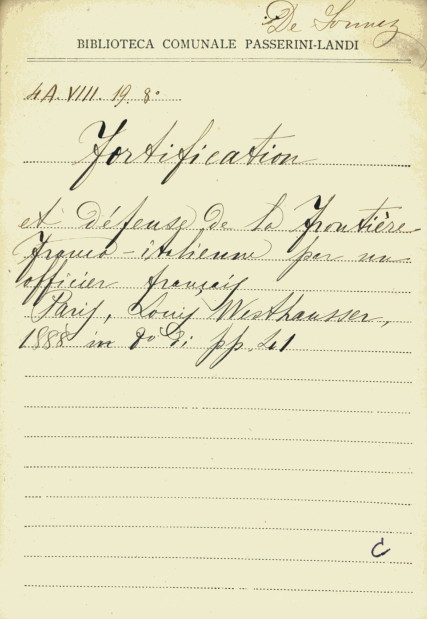 De Sonnaz
BIBLIOTECA COMUNALE PASSERINI-LANDI
4A. VIII. 19. 8º
Fortification
et défense de la Frontière
Franco-italienne par un
officier français
Paris, Louis Westhausser,
1888 in 8º di pp. 41
C